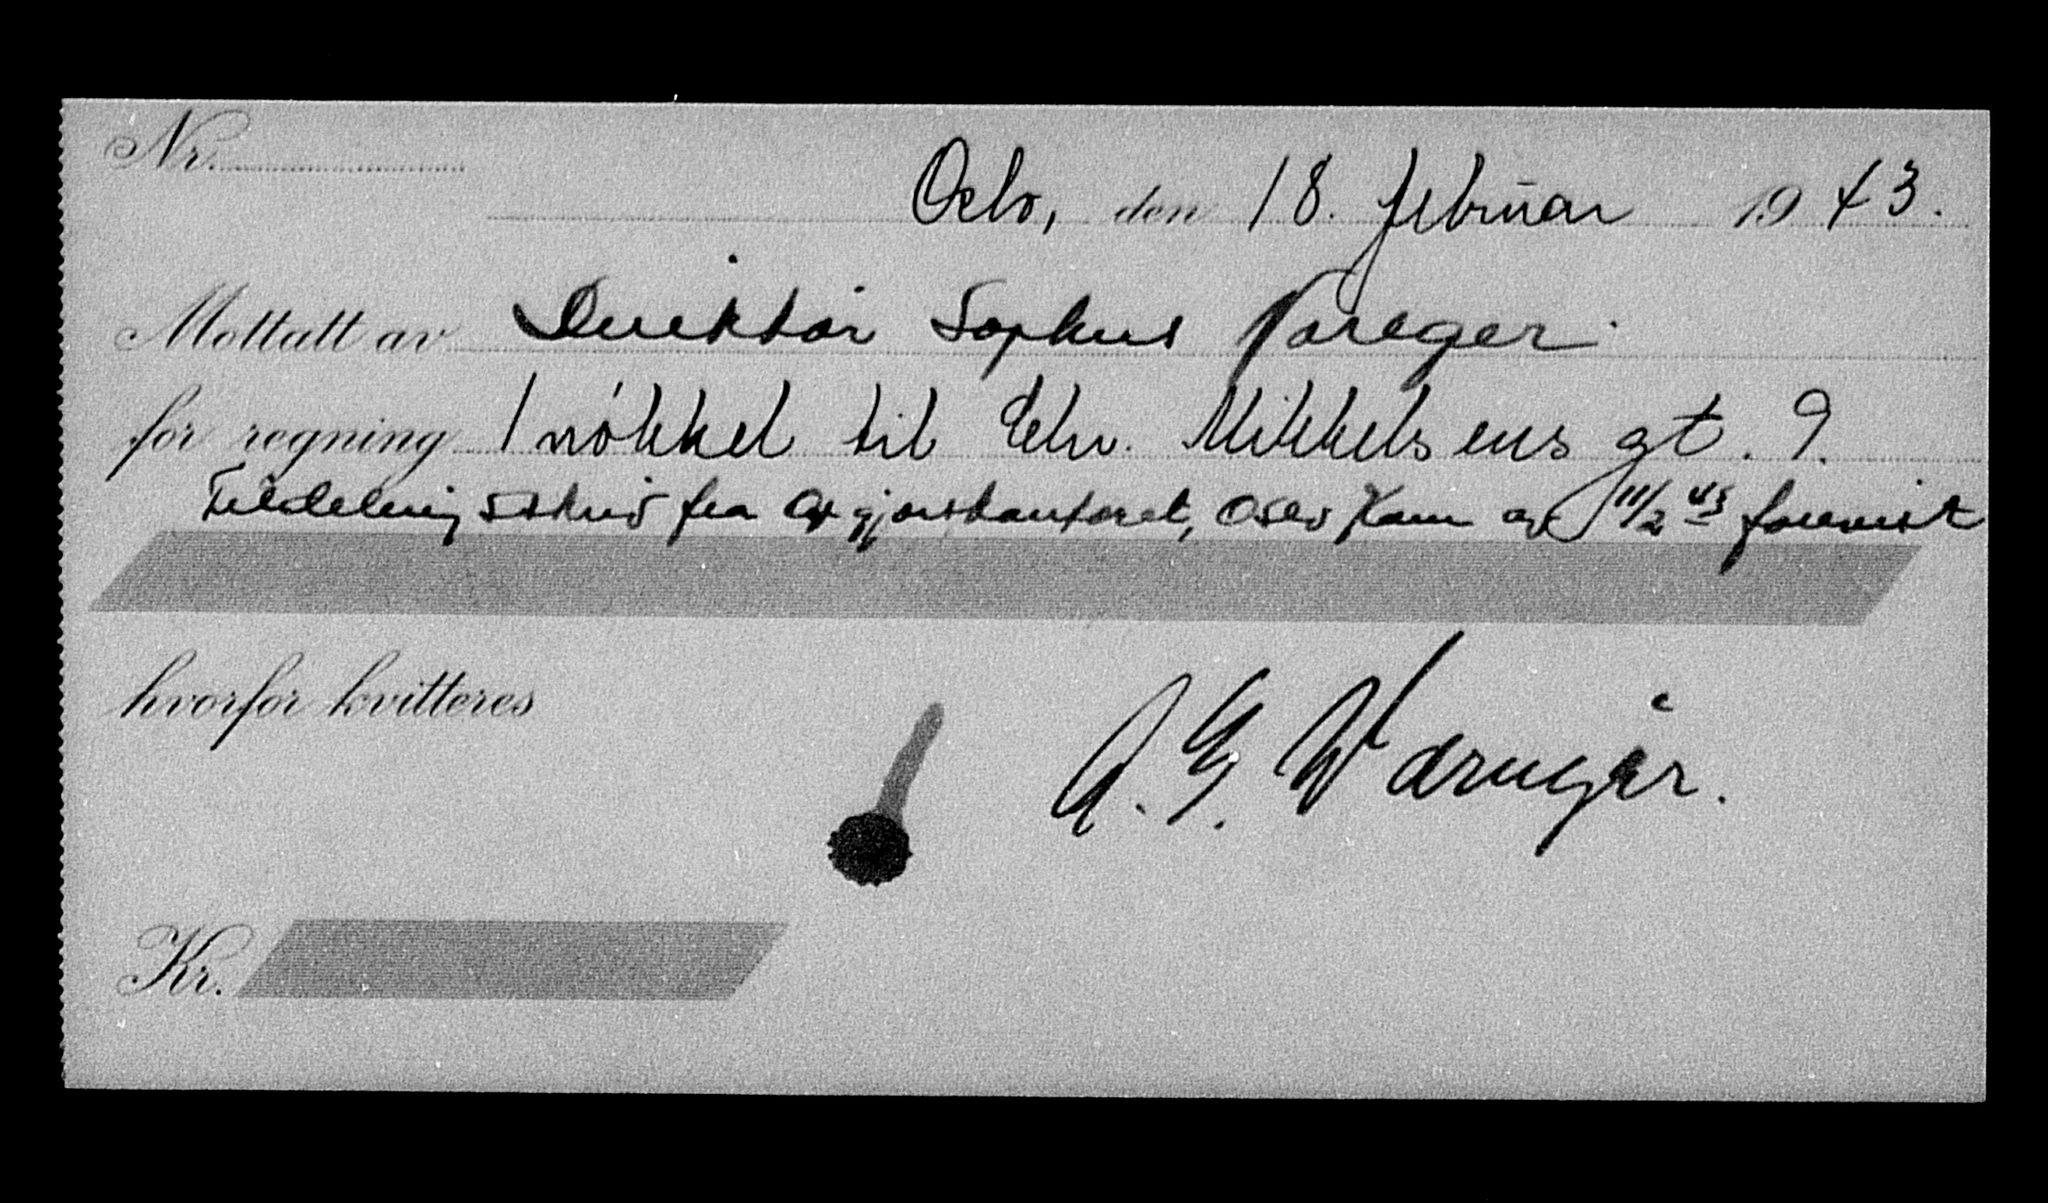 Nr.
Oslo, den 18. februar 1943.
Mottatt av Direktør Sophus
for regning 1 nøkkel til Chr. Mikkelsens gt. 9.
Tildelingsskriv fra Oppgjørskontoret, Oslo Kom av 11/2 43 forevist
hvorfor kvitteres
Kr.